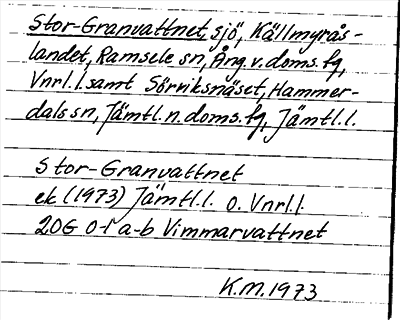 Stor-Granvattnet, sjö, Källmyrås-
landet, Ramsele sn, Ång. v. doms. fg,
Vnrl. l. samt Sörviksnäset, Hammer-
dals sn, Jämtl. n. doms. fg, Jämtl. l.
Stor-Granvattnet
ek (1973) Jämtl. l. o. Vnrl. l
20G 0-1 a-b Vimmarvattnet
K.M. 1973